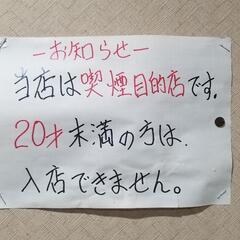 ーお知らせー
当店は喫煙目的店です.
20才未満の方は.
入店できません。